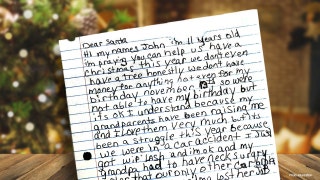 Dear Santa
Hi my names John i'm 11 years old
i'm praying you can help us have a
Christmas this year we dont even
have a tree honestly we dont have
money for anything not even for my
birthday november so were
not able to have my birthday but
its ok I understand because my
grandparents have been raising me
and I love them very much but its
been a struggle this year because
we were in a car accident I Just
got wip lash and im ok and my
grandpa had to have neck surgry
that our only other car
lost her job